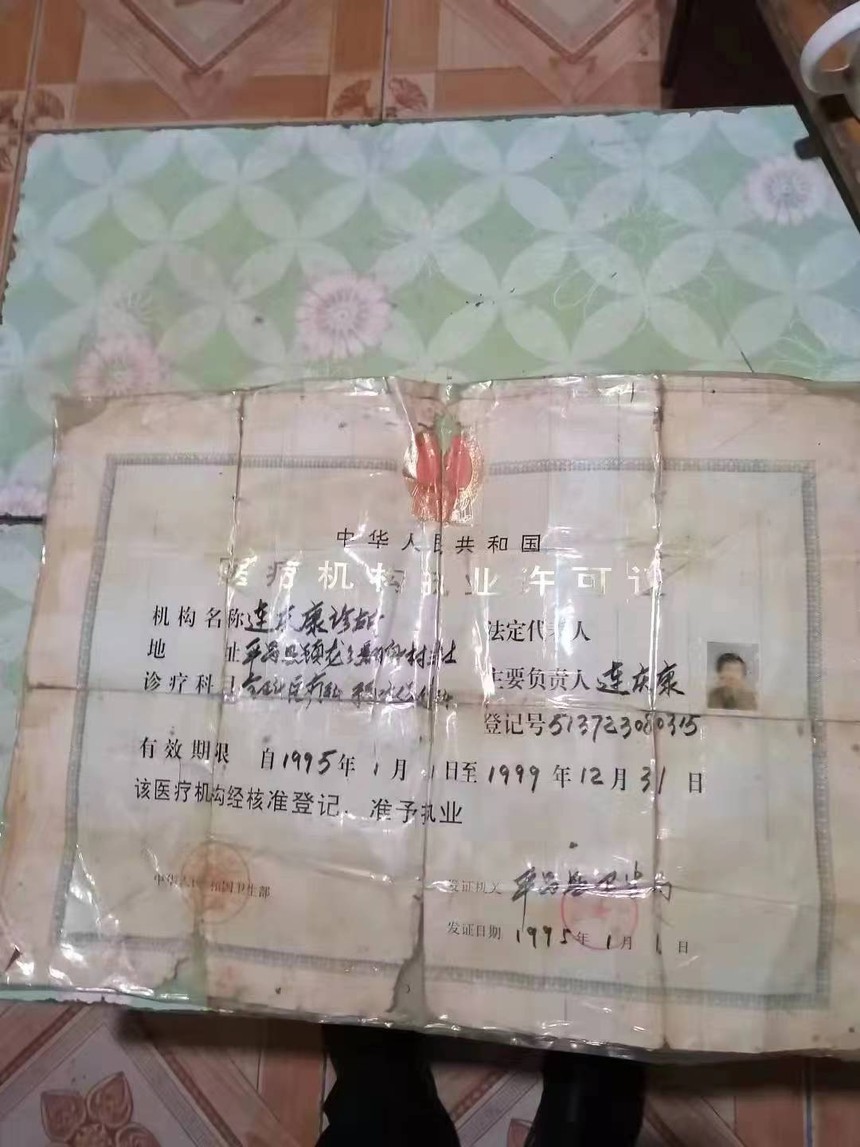 中华人民共和国
医疗机构执业许可证
机构名称 连庆康诊所
法定代表人
地 址 平昌县镇龙
主要负责人 连庆康
诊疗科目
登记号 513723080315
有效期限 自1995年1月1日至1999年12月31日
该医疗机构经核准登记，准予执业
中华人民共和国卫生部
发证机关 平昌县卫生局
发证日期 1995年1月1日